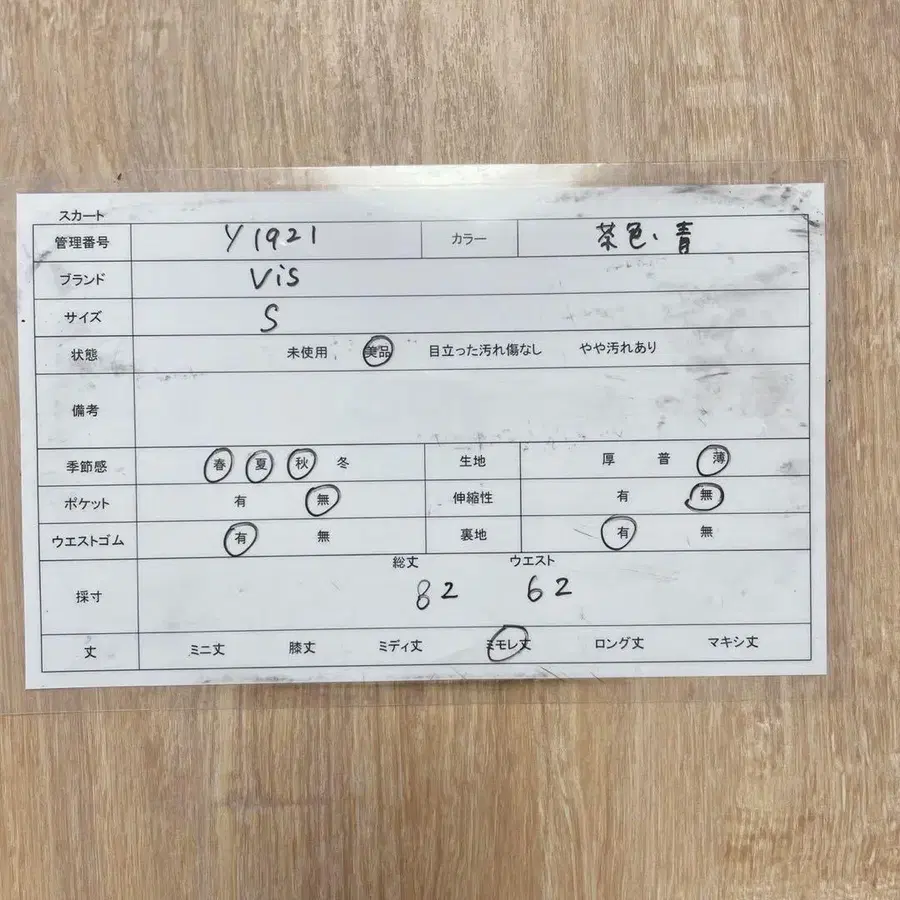 スカート
管理番号 Y1921 カラー 茶色、青
ブランド Vis
サイズ S
状態 未使用 美品 目立った汚れ傷なし やや汚れあり
備考
季節感 春 夏 秋 冬 生地 厚 普 薄
ポケット 有 無 伸縮性 有 無
ウエストゴム 有 無 裏地 有 無
総丈 ウエスト
採寸 82 62
丈 ミニ丈 膝丈 ミディ丈 ミモレ丈 ロング丈 マキシ丈